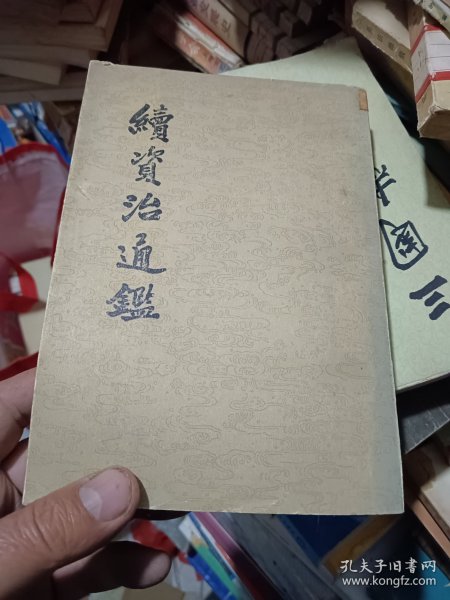 續資治通鑑
三國
孔夫子旧书网
www.kongfz.com